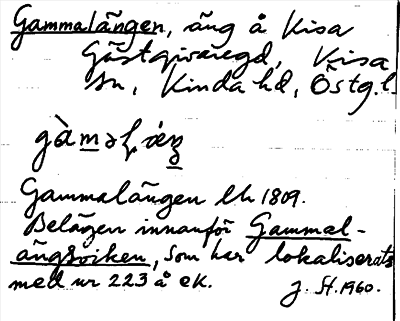 Gammalängen, äng å Kisa
Gästgivaregd, Kisa
sn, Kinda hd, Östg.l.
Gammalängen lh 1809.
Belägen innanför Gammal-
ängsviken, som har lokaliserats
med nr 223 å ek.
J. St. 1960.